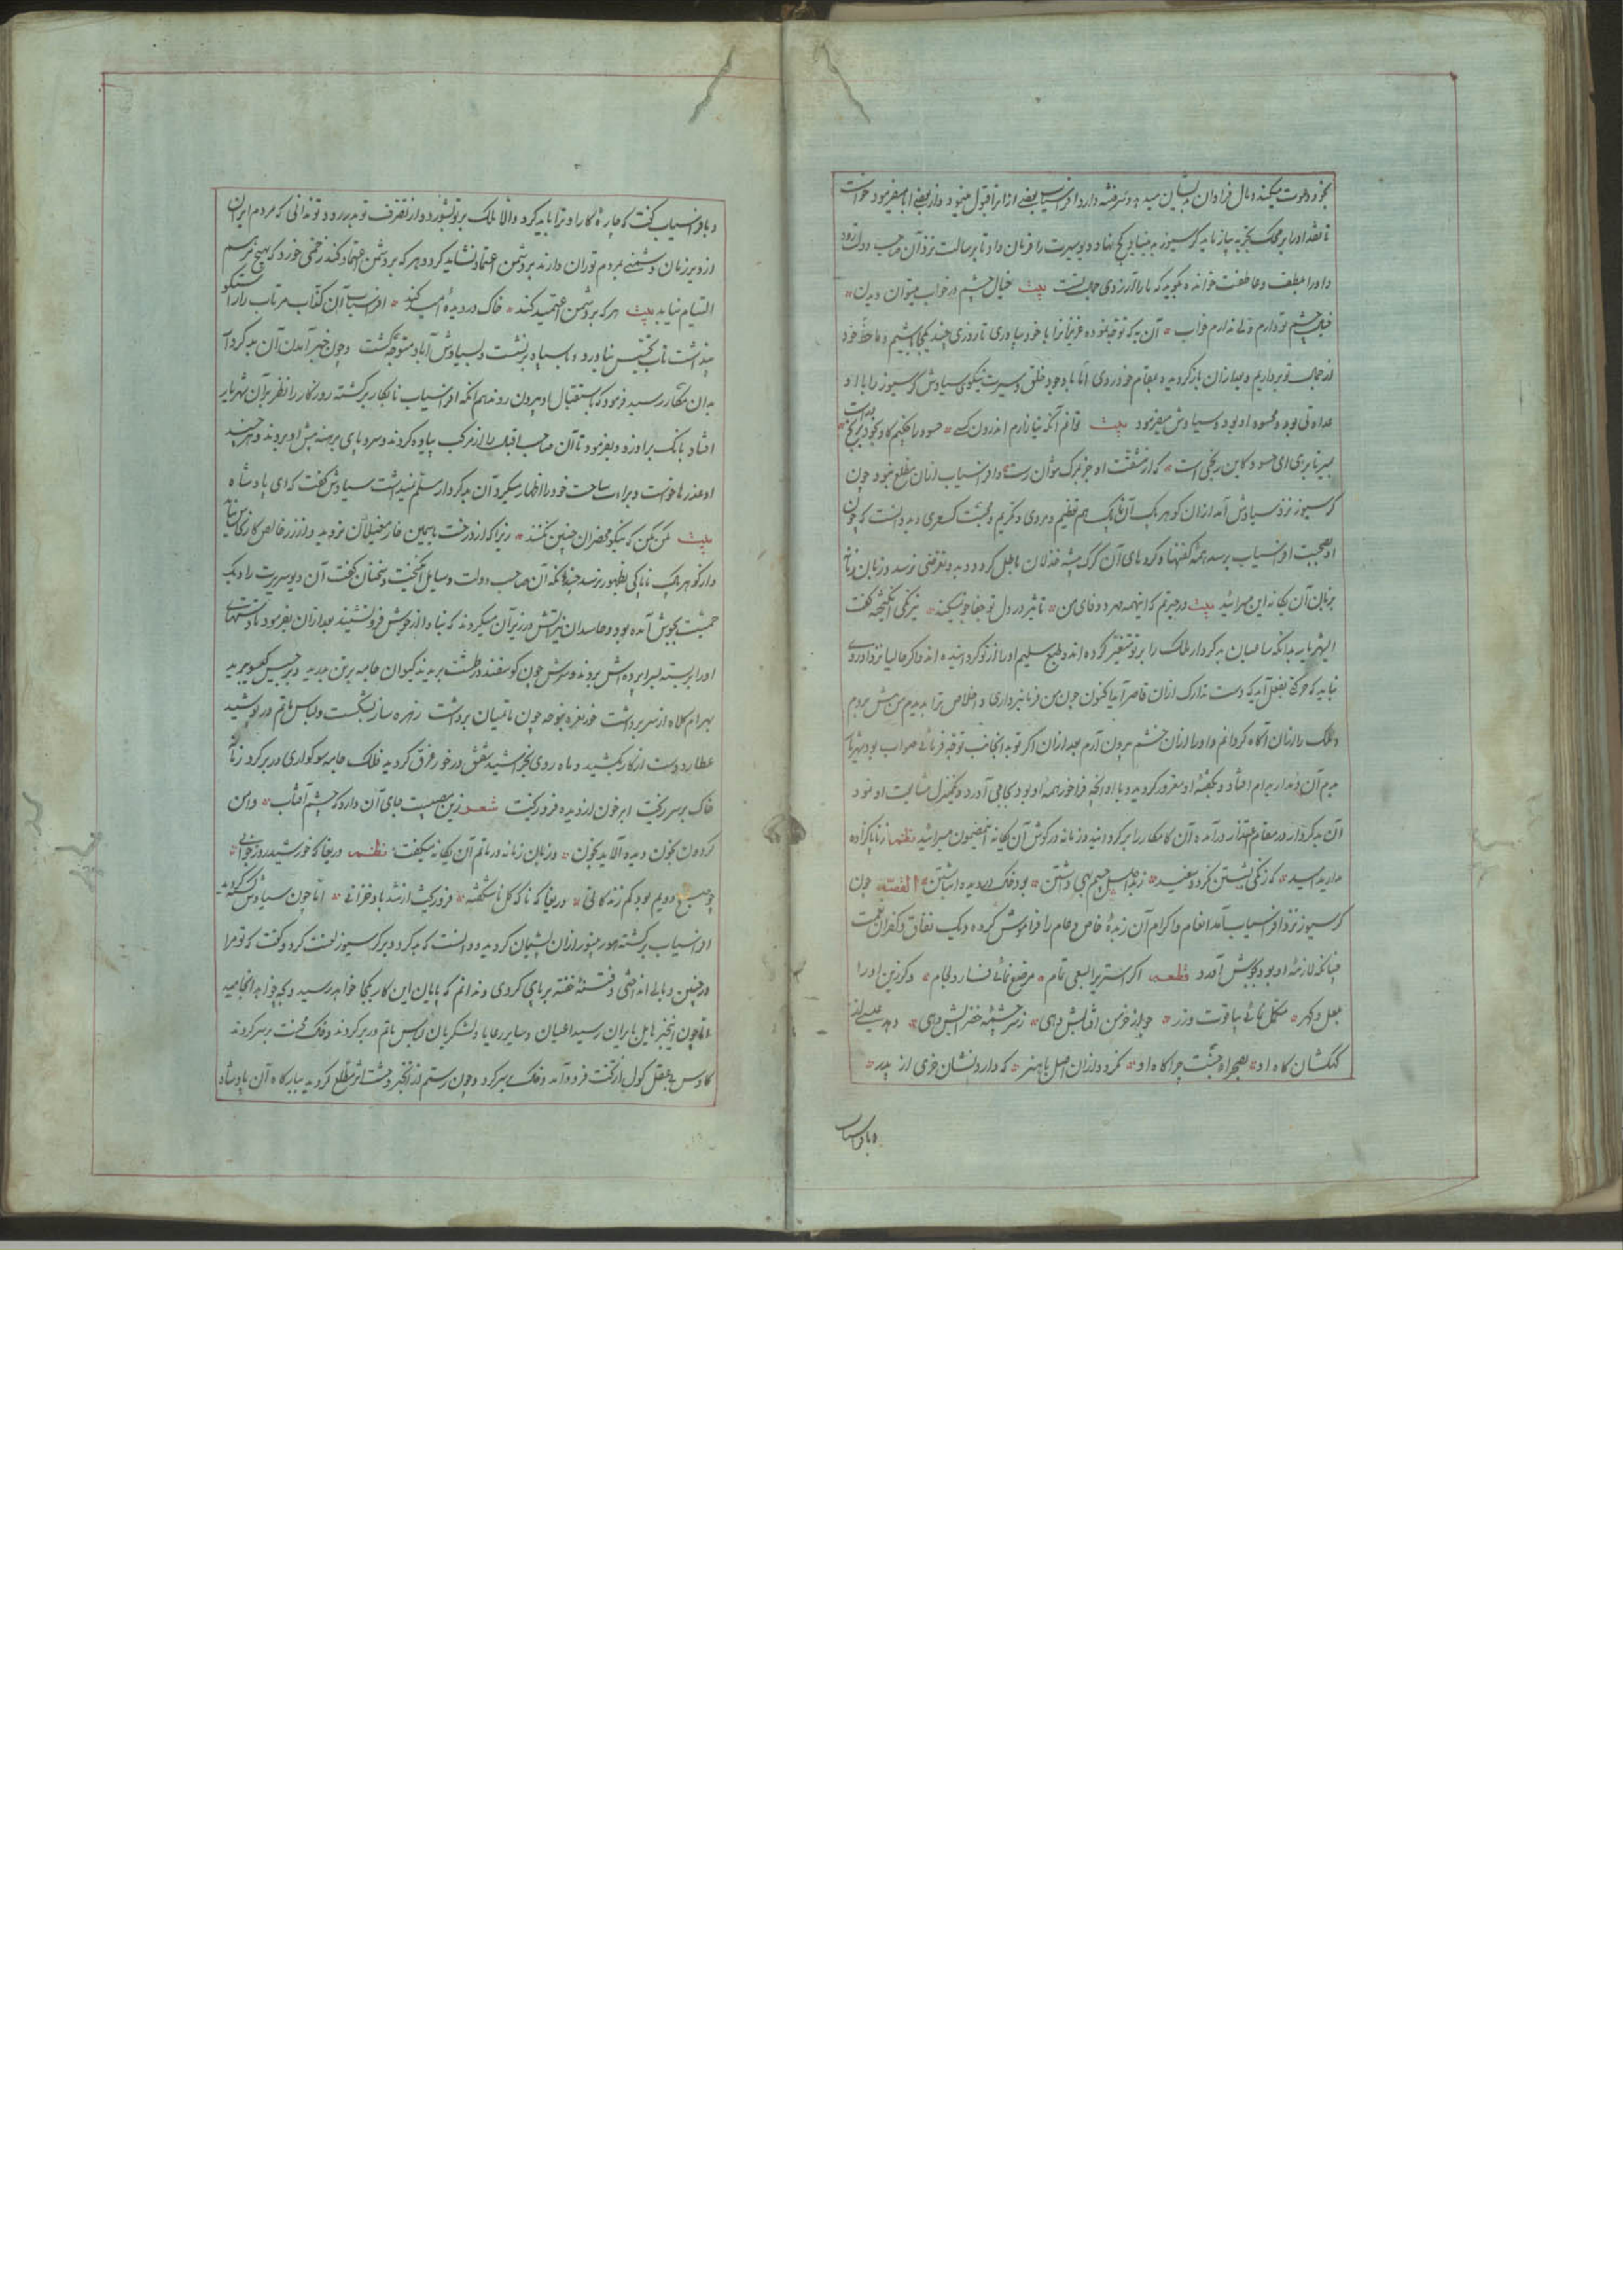 بخود دعوت میکند و مال فراوان بدیشان میدهد و سر فتنه دارد افراسیاب بعضی از انرا قبول مینمود و از بعضی ابا میفرمود خواست
تا نقد او را بر محک تجربه بیازماید کرسیوز بد بنیاد کج نهاد دیو سیرت را فرمان داد تا برسالت نزد آن صاحب دولت رود
و او را بعطف و عاطفت خوانده بگوید که ما را آرزوی جمال تست بیت خیال چشم در خواب میتوان دیدن
خیال چشم تو دارم ولی ندارم خواب آن به که توجه نموده عزیزانرا با خود بیاوری تا روزی چند یکجا باشیم و ما حظ خود
از جمال تو برداریم و بعد ازان بازگردیده بمقام خود روی اما با وجود خلق و سیرت نیکوی سیاوش کرسیوز را با او
عداوتی بود و محسود او بود و سیاوش میفرمود بیت توانم آنکه نیازارم اندرون کسی حسود را چکنم کاو بخود برنج درست
بمیر تا برهی ای حسود کاین رنجی است که از مشقت او جز بمرگ نتوان رست و افراسیاب ازان مطلع نبود چون
کرسیوز نزد سیاوش آمد ازان کوهر پاک آن ناپاک هم تعظیم و مردی و تکریم و محبت کسری دید دانست که چون
او بصحبت افراسیاب برسد همه گفتها و کردهای آن گرگ پیشه فذلان باطل گردد و بد و تعرضی نرسد و زبان زمانه
بزبان آن یکانه این میسرائید بیت در حیرتم که اینهمه مهر و وفای من تاثیر در دل تو جفا جو نمیکند نیرنگی انگیخته گفت
ایشهریار بدانکه ساعیان بدکردار ملک را بر تو متغیر کرده اند و طبع سلیم او را از تو گردانیده اند و اگر حالیا نزد او روی
نباید که حرکتی بفعل آید که دست تدارک ازان قاصر آید اکنون چون من فرمانبرداری و اخلاص ترا بدیدم من پیش بروم
و ملک را ازان آگاه گردانم و او را ازان خشم برون آرم بعد ازان اگر تو بدانجانب توجه فرمائی صواب بود شهریار
بدم آن غدار بدام افتاد و بگفته او مغرور گردیده و با او آنچه فراخور همه او بود بجای آورد و یکمنزل مشایعت او نمود
آن بدکردار در مقام اعتذار درآمده آن کامکار را برگردانید و زمانه در گوش آن یکانه اینمضمون میسرائید نظم ز ناپاک زاده
مدارید امید که زنگی بشستن نگردد سفید ز بد اصل چشم بهی داشتن بود خاک در دیده انباشتن القصه چون
کرسیوز نزد افراسیاب آمد انعام و اکرام آن زبدهٔ خاص و عام را فراموش کرده و دیک نفاق و کفران نعمت
چنانکه لازمهٔ او بود بجوش آورد قطعه اگر استریرا بسعی تمام مرصع نمائی فسار و لجام وگر زین او را
بلعل و گهر مکلل نمائی بیاقوت و زر جو از خرمن آفتابش دهی ز سرچشمهٔ خضر آبش دهی دهد
کهکشان کاه او بصحرای جنت چراگاه او نگردد ازان اصل با هنر که دارد نشان خری از پدر
و بافراسیاب
و بافراسیاب گفت که چارهٔ کار او ترا باید کرد و الا ملک بر تو بشورد و از تصرف تو بدر رود و تو ندانی که مردم ایران
از دیر زمان دشمنی بمردم توران دارند بر دشمن اعتماد نشاید کرد و هر که بر دشمن اعتماد کند زخمی خورد که بهیچ مرهم
التیام نیابد بیت هر که بر دشمن اعتمید کند خاک در دیدهٔ امید کند افراسیاب آن کذاب مرتاب را راستگو
پنداشت تاب تحقیق نیاورد و با سپاه برنشست و بسیاوش آباد متوجه گشت و چون خبر آمدن آن بدکردار
بدان کامکار رسید فرمود که باستقبال او بیرون روند هم آنکه افراسیاب نابکار برگشته روزگار را نظر بر آن شهریار
افتاد بانک بر او زد و بفرمود تا آن صاحب اقبال را از مرکب پیاده کردند و سر و پای برهنه پیش او بردند و هر چند
او عذرها خواست و براءت ساحت خود را اظهار میکرد آن بدکردار مسلم نمیداشت سیاوش گفت که ای پادشاه
بیت مکن مکن که نیکو محضران چنین نکنند زیرا که از درخت یاسمین خار مغیلان نروید و از زر خالص کار نحاس نیاید
و از گوهر پاک ناپاکی بظهور نرسد چندانکه آن صاحب دولت وسایل انگیخت و سخنان گفت آن دیو سیرت را دیک
حمیت بجوش آمده بود و حاسدان نیز آتش در زیر آن میکردند که مبادا از جوش فرو نشیند بعد ازان بفرمود تا دستهای
او را بر بسته لبرابر پدرش بردند و سرش چون گوسفند در طشت بریدند کیوان جامه بر تن بدرید و برجیس گیسو ببرید
بهرام کلاه از سر برداشت خور نعره بنوحه چون ماتمیان برداشت زهره ساز بشکست و لباس ماتم در پوشید
عطارد دست از کار بکشید و ماه روی بخراشید شفق در خون غرق گردید فلک جامه سوگواری در بر کرد زمانه
خاک بر سر ریخت ابر خون از دیده فرو ریخت شعر زین مصیبت جای آن دارد که چشم آفتاب دامن
گردون بخون دیده آلاید بخون و زبان زمانه در ماتم آن یکانه میگفت نظم دریغا که خورشید روز جوانی
چو صبح دویم بود کم زندگانی دریغا که ناگه گل ناشگفته فرو ریخت از تند باد خزانی اما چون سیاوش کشته گردید
افراسیاب برگشته هنوز ازان پشیمان گردید و دانست که بد کرد و بر کرسیوز لعنت کرد و گفت که تو مرا
در چنین وبالی انداختی و فتنهٔ خفته بر پای کردی و ندانم که پایان این کار بکجا خواهد رسید و بچه خواهد انجامید
اما چون اینخبر هایل بایران رسید اعیان و سایر رعایا و لشکریان لباس ماتم در بر کردند و خاک محنت بر سر کردند
کاوس بیعقل کول از تخت فرود آمد و خاک بسر کرد و چون رستم از اینخبر وحشت اثر مطلع گردید ببارگاه آن پادشاه